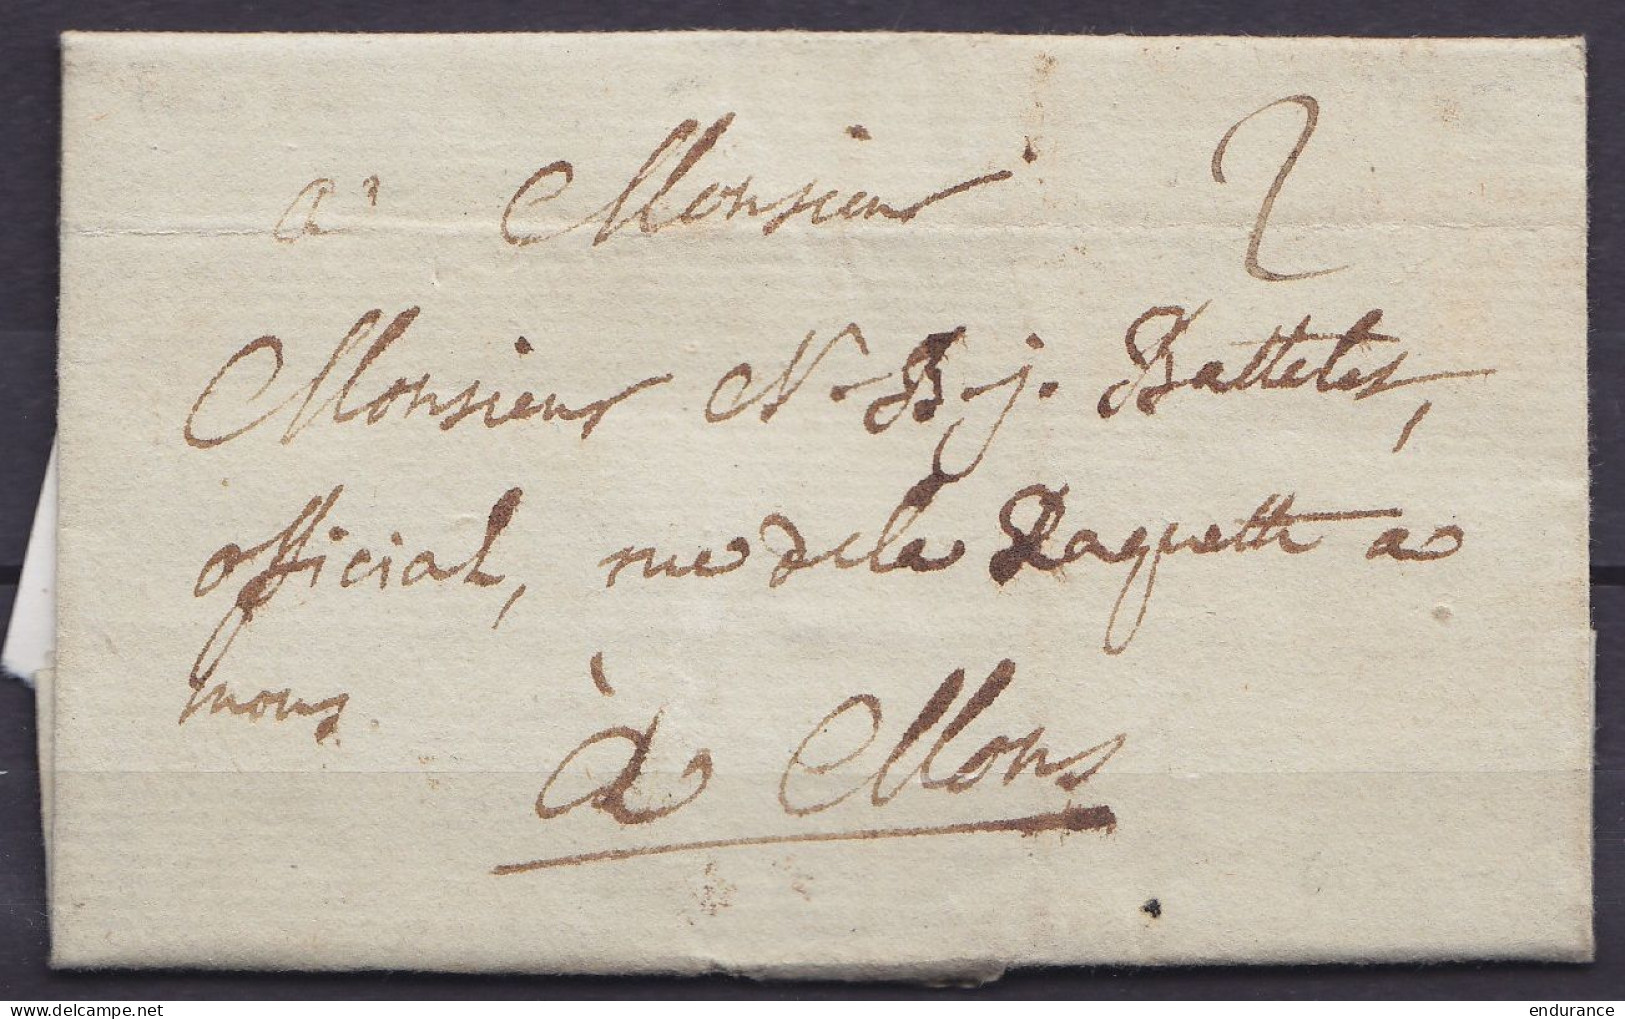 a Monsieur 2
Monsieur N. B. j. Battelet,
official, rue de la Raquette a
mons
à Mons
endurance